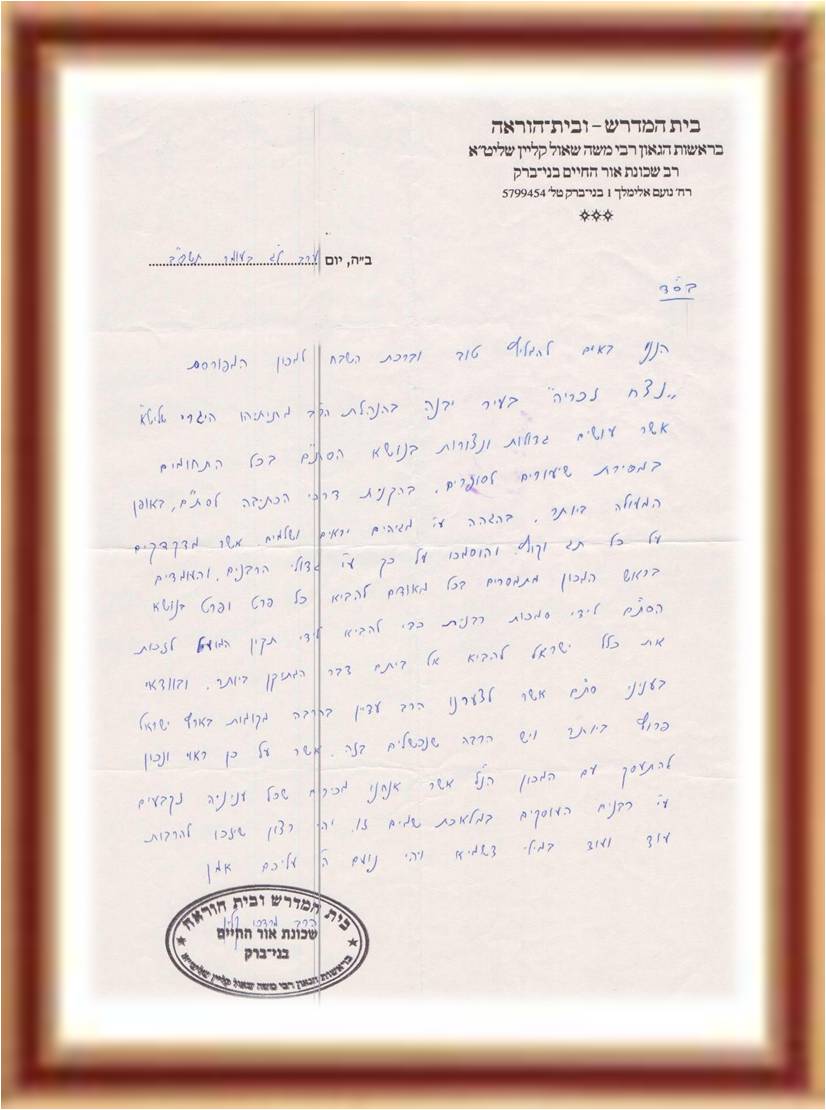 בית המדרש – ובית־הוראה
בראשות הגאון רבי משה שאול קליין שליט״א
רב שכונת אור החיים בני־ברק
רח׳ נועם אלימלך 1 בני־ברק טל׳ 5799454
ב״ה, יום ערב ל״ג בעומר
בס״ד
הננו באים להמליץ טוב וברכת השבח למכון המפורסם
״נצח זכריה״ בעיר יבנה בהנהלת הר״ב מתיתיהו היגרי שליט״א
אשר עושים גדולות ונצורות בנושא הסת״ם בכל התחומים
במסירת שיעורים לסופרים, בהקנית דרכי הכתיבה לסת״ם, באופן
המעולה ביותר, בהגהה ע״י מגיהים יראים ושלמים אשר מדקדקים
על כל תג וקוץ, והוסמכו על כך ע״י גדולי הרבנים, והעומדים
בראש המכון מתמסרים בכל מאודם להביא כל פרט ופרט בנושא
הסת״ם לידי סמכות רבנית כדי להביא לידי תקין המועל לזכות
את כלל ישראל להביא אל ביתם דבר המתוקן ביותר, ובוודאי
בעניני סת״ם אשר לצערנו הרב עדיין בהרבה מקומות בארץ ישראל
פרוץ ביותר ויש הרבה שנכשלים בזה, אשר על כן ראוי ונכון
להתעסק עם המכון הנ״ל אשר אנחנו מכירים שכל עניניה נקבעים
ע״י רבנים העוסקים במלאכת שמים זו, יהי רצון שיזכו להרבות
עוד ועוד במילי דשמיא ויהי נועם ה׳ עליכם אמן
הרב מרדכי קליין
בית המדרש ובית הוראה
שכונת אור החיים
בני־ברק
בראשות הגאון רבי משה שאול קליין שליט״א